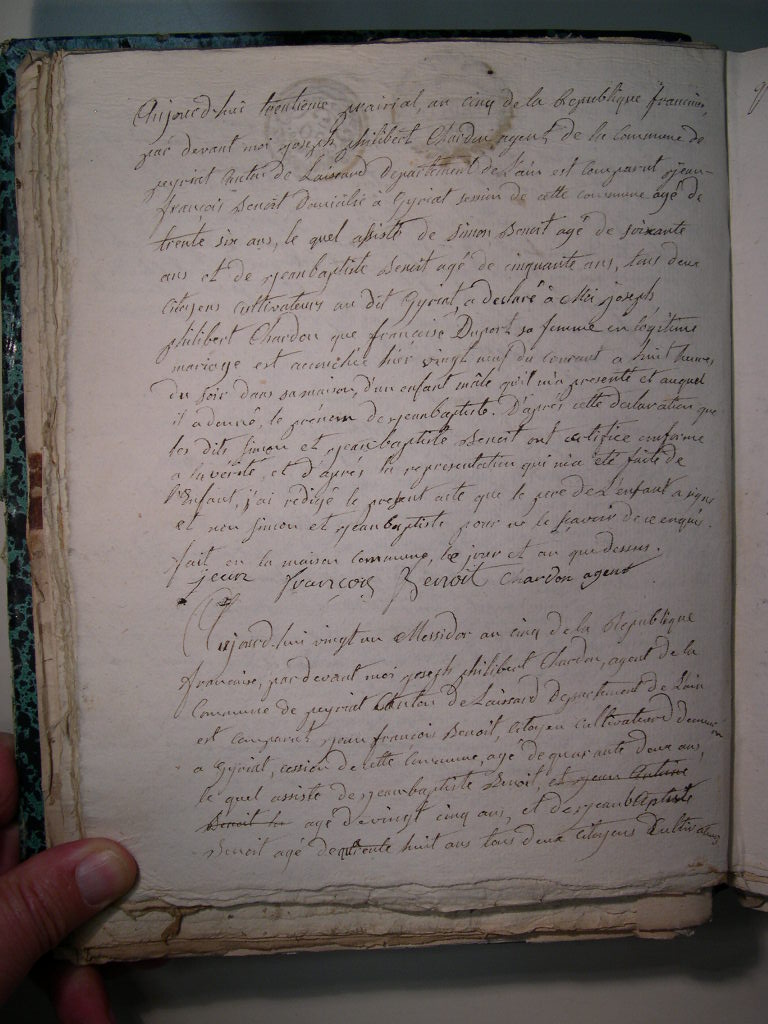 Aujourd'hui trentième prairial, an cinq de la République francaise,
par devant moi joseph philibert Chardon agent de la Commune de
peyriat Canton de Laissard departement de L'ain est comparut jean
françois Benoit Domicilié a Gyriat section de cette commune agé de
trente six ans, le quel assisté de Simon Benoit agé de soixante
ans et de jeanbaptiste Benoit agé de cinquante ans, tous deux
citoyens cultivateurs au dit Gyriat, a declaré à Moi joseph
philibert Chardon que françoise Duport sa femme en légitime
mariage est accouchée hier vingt neuf du courant a huit heures
du soir dans sa maison, d'un enfant mâle qu'il m'a presenté et auquel
il a donné, le prénom de jeanbaptiste. D'après cette declaration que
les dits Simon et jeanbaptiste Benoit ont certifice conforme
a la vérité, et d'après la representation qui m'a été faite de
l'Enfant, j'ai redigé le present acte que le pere de L'enfant a signé
et non Simon et jeanbaptiste pour ne le sçavoir de ce enquis.
fait en la maison Commune, le jour et an que dessus.
jean françois Benoit Chardon agent
Aujourd'hui vingt un Messidor an cinq de la République
francaise, par devant moi joseph philibert Chardon, agent de la
Commune de peyriat Canton de Laissard departement de L'ain
est comparut jean francois Benoit, citoyen cultivateur demeurant
a Gyriat, section de cette Commune, agé de quarante deux ans,
le quel assisté de jeanbaptiste Benoit, et jean Antoine
Benoit agé de vingt cinq ans, et de jeanbaptiste
Benoit agé de trente huit ans tous deux citoyens Cultivateurs